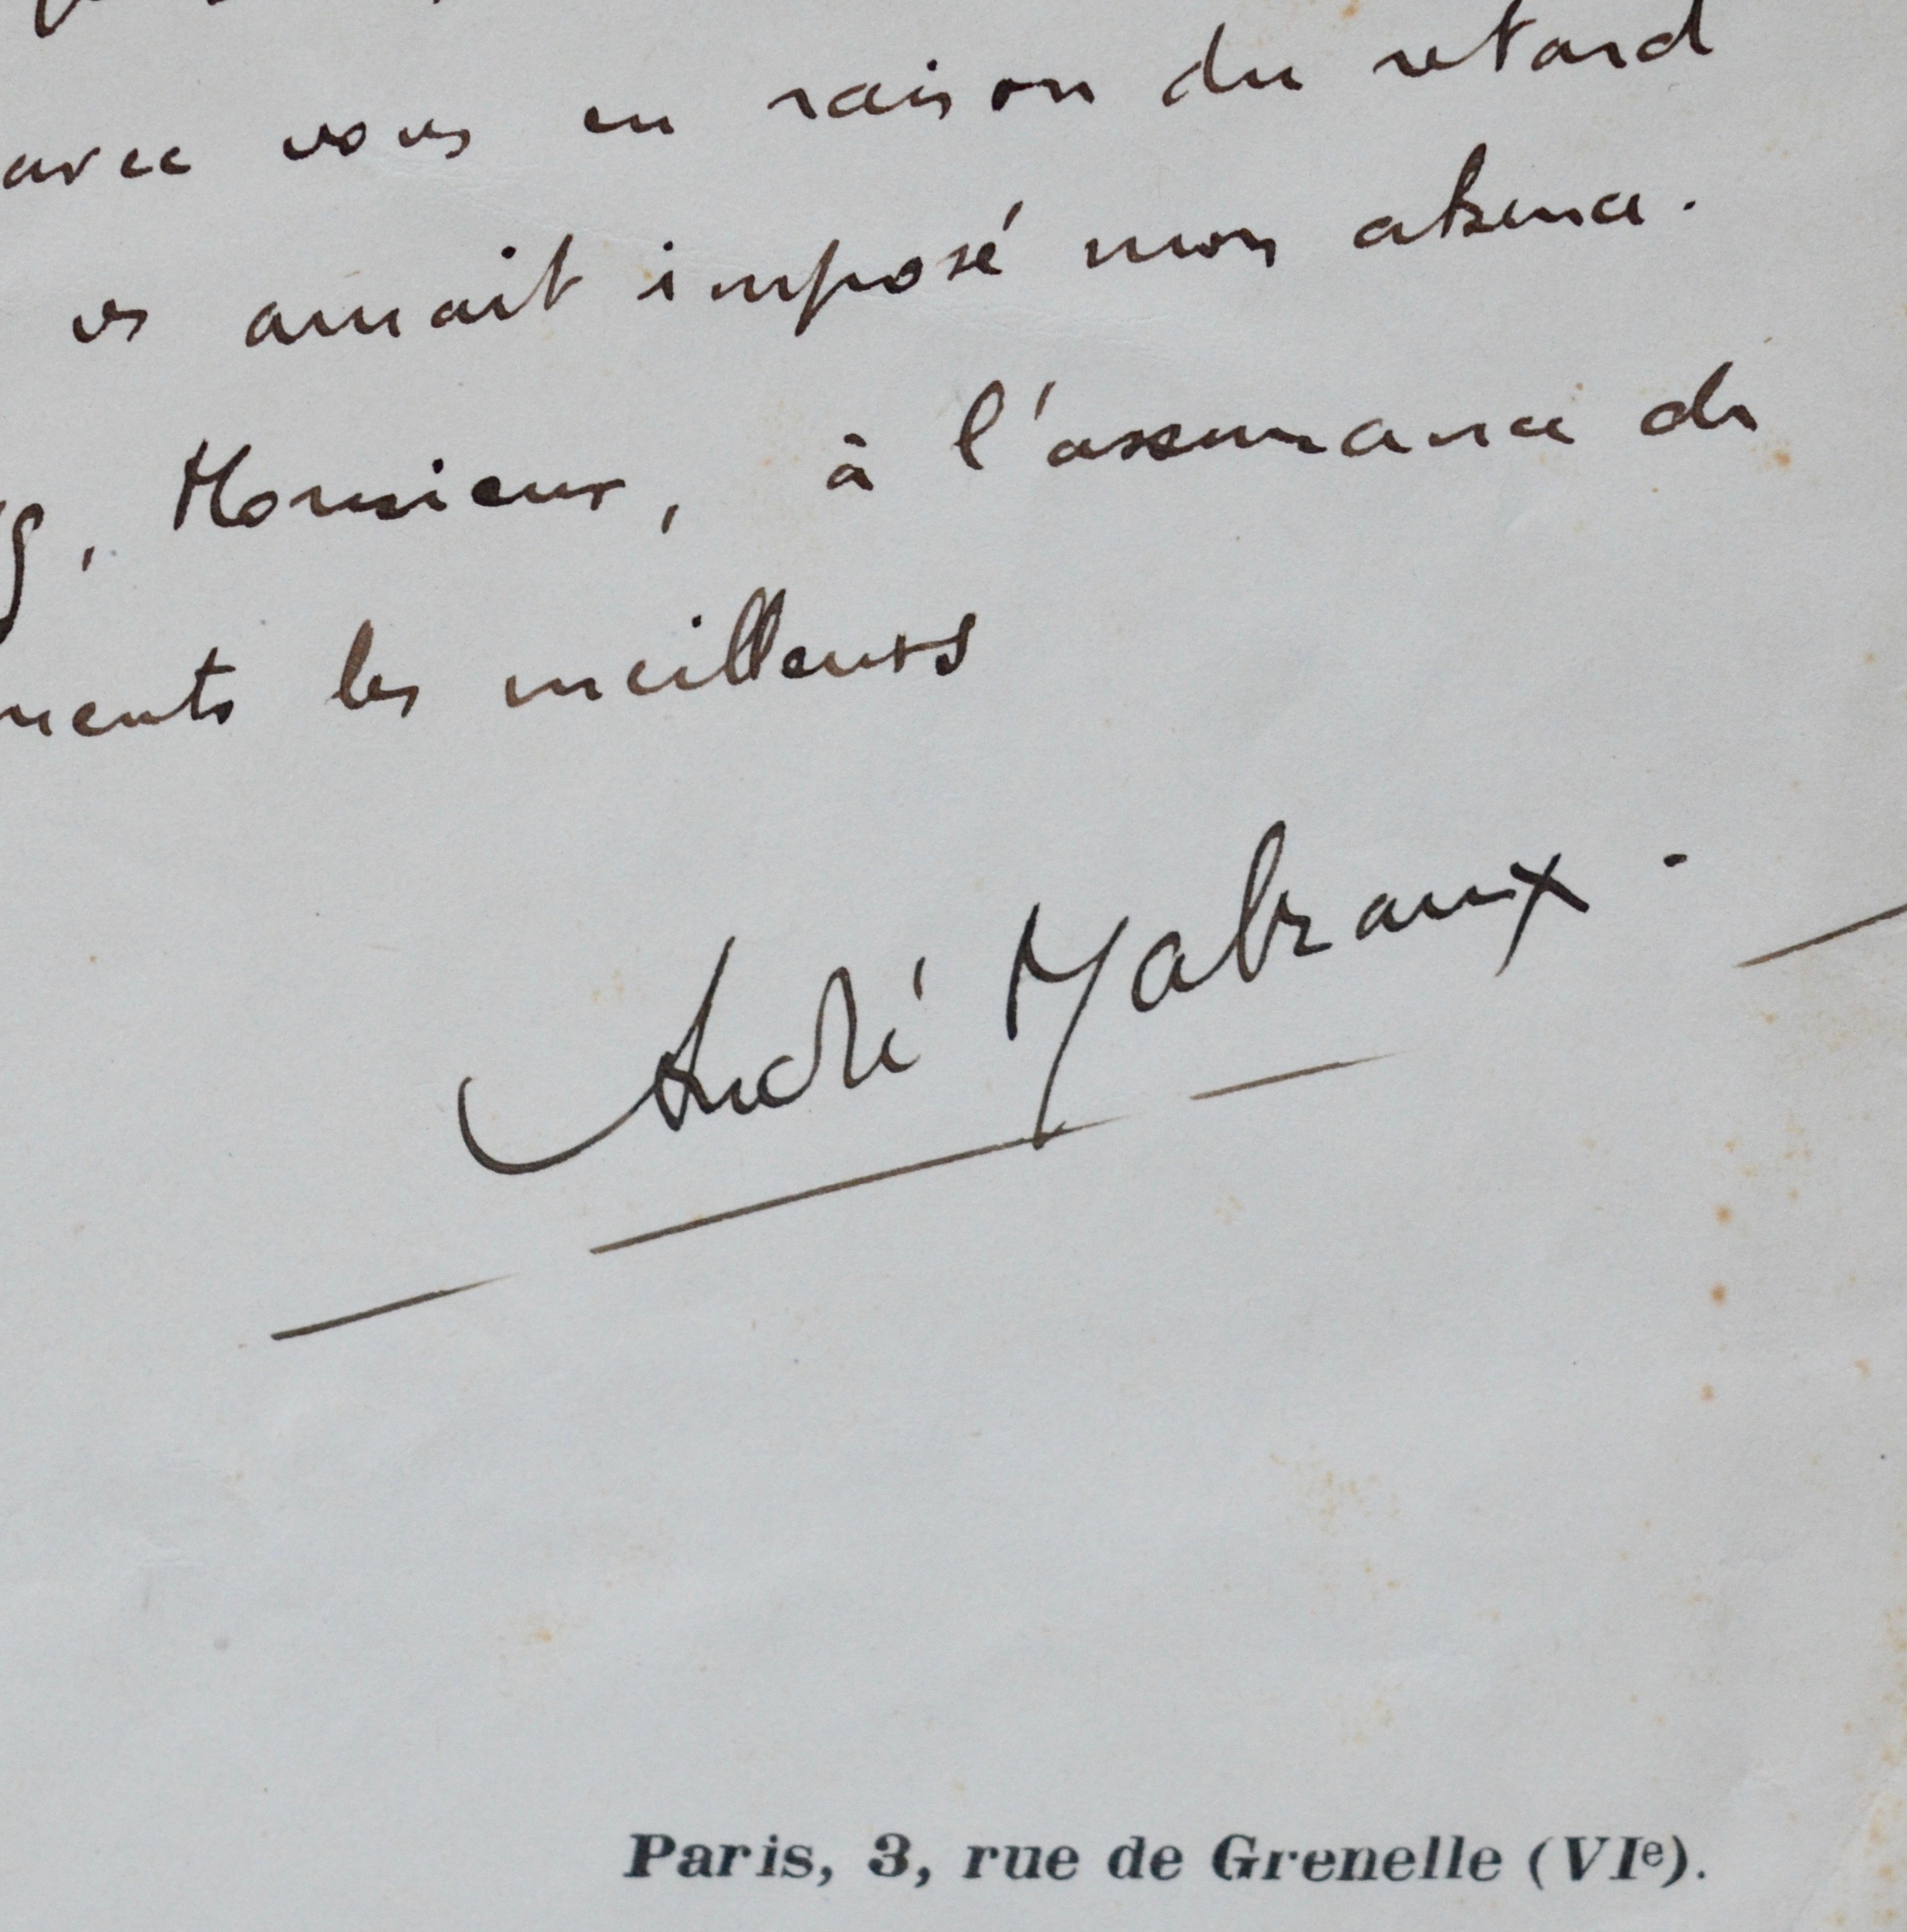 avec vous en raison du retard
vs aurait imposé mon absence.
, Monsieur, à l'assurance de
ments les meilleurs
André Malraux.
Paris, 3, rue de Grenelle (VIe).